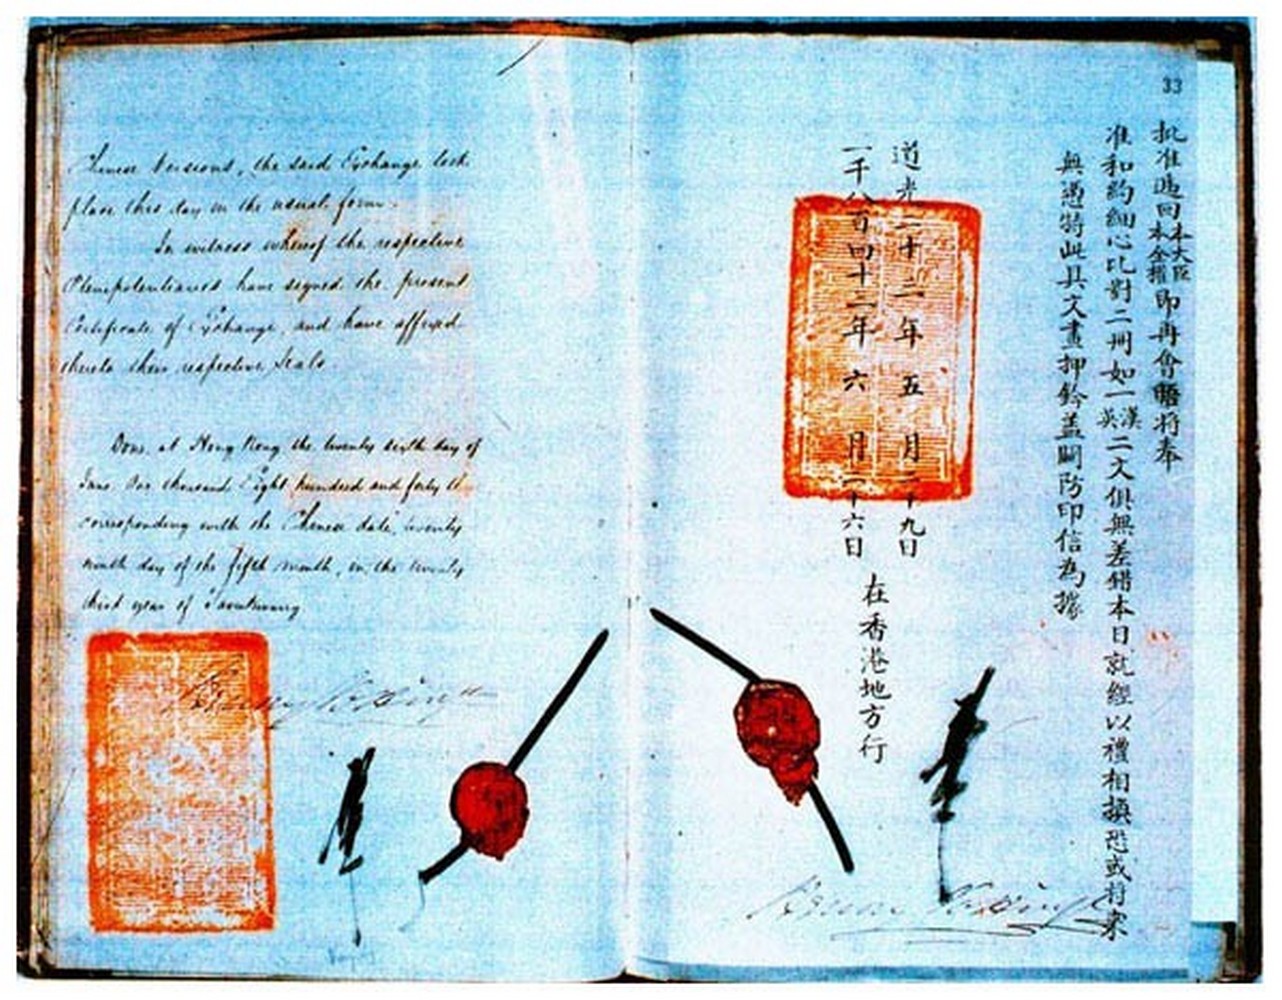 Chinese Versions, the said Exchange took
place this day in the usual form.
In witness whereof the respective
Plenipotentiaries have signed the present
Certificate of Exchange, and have affixed
thereto their respective Seals.
Done at Hong Kong the twenty sixth day of
June One thousand Eight hundred and forty
corresponding with the Chinese date, twenty
ninth day of the Fifth month, in the twenty
third year of Taoukwang
33
批准遞回本大臣本全權即再會晤將奉
准和約細心比對二冊如一漢英二文俱無差錯本日就經以禮相換恐或將來
無憑特此具文畫押鈐盖關防印信為據
道光二十三年五月二十九日
一千八百四十三年六月二十六日
在香港地方行